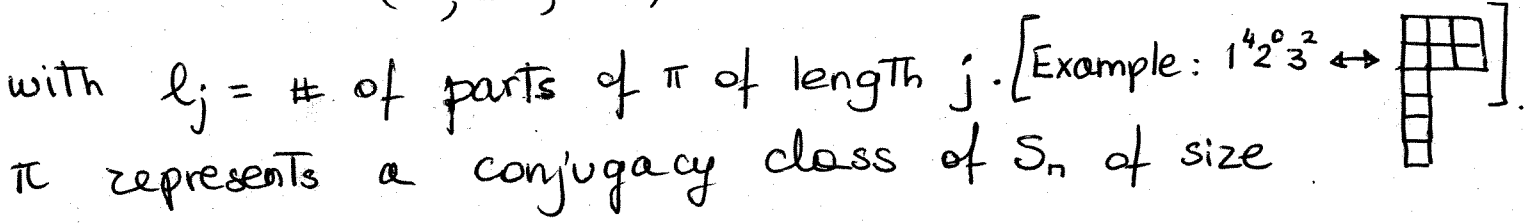 with ℓ_j = # of parts of π of length j. [Example: 1⁴2⁰3² ↔ ].
π represents a conjugacy class of S_n of size